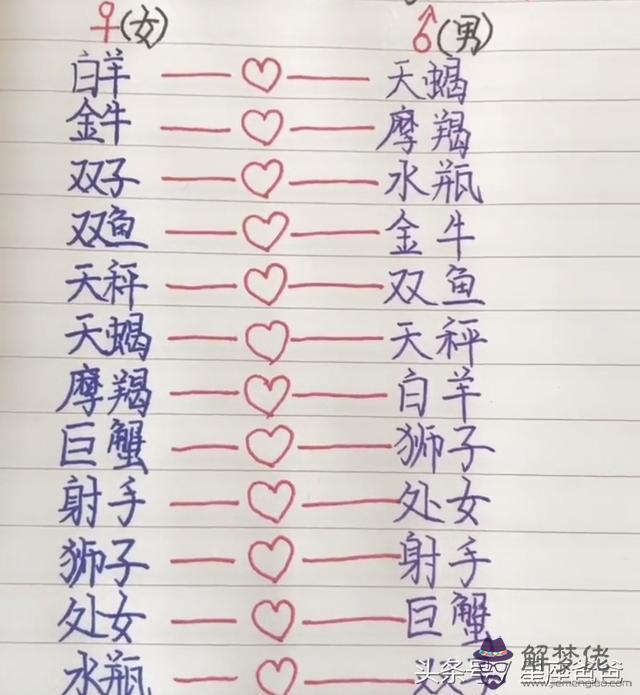 ♀(女) ♂(男)
白羊 天蝎
金牛 摩羯
双子 水瓶
双鱼 金牛
天秤 双鱼
天蝎 天秤
摩羯 白羊
巨蟹 狮子
射手 处女
狮子 射手
处女 巨蟹
水瓶
头条号/星座爸爸
解梦佬
www.jiemenglao.com